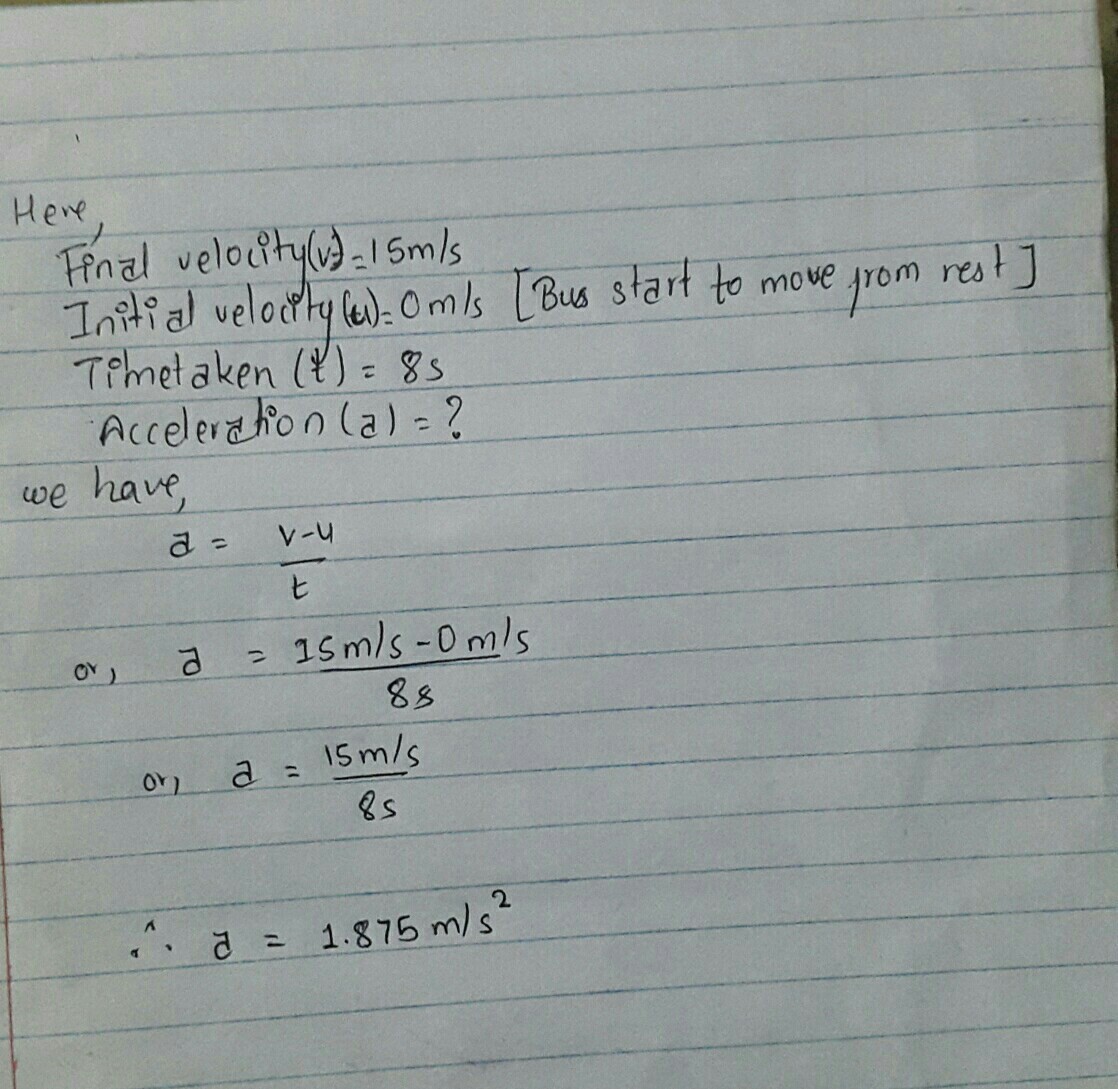 Here,
Final velocity(v)=15m/s
Initial velocity(u)=0m/s [Bus start to move from rest]
Timetaken (t) = 8s
Acceleration(a)=?
we have,
a = v-u
t
or, a = 15m/s-0m/s
8s
or, a = 15m/s
8s
∴ a = 1.875 m/s²